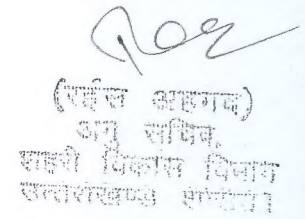 (रईस अहमद)
अनु सचिव,
शहरी विकास विभाग
उत्तराखण्ड शासन।